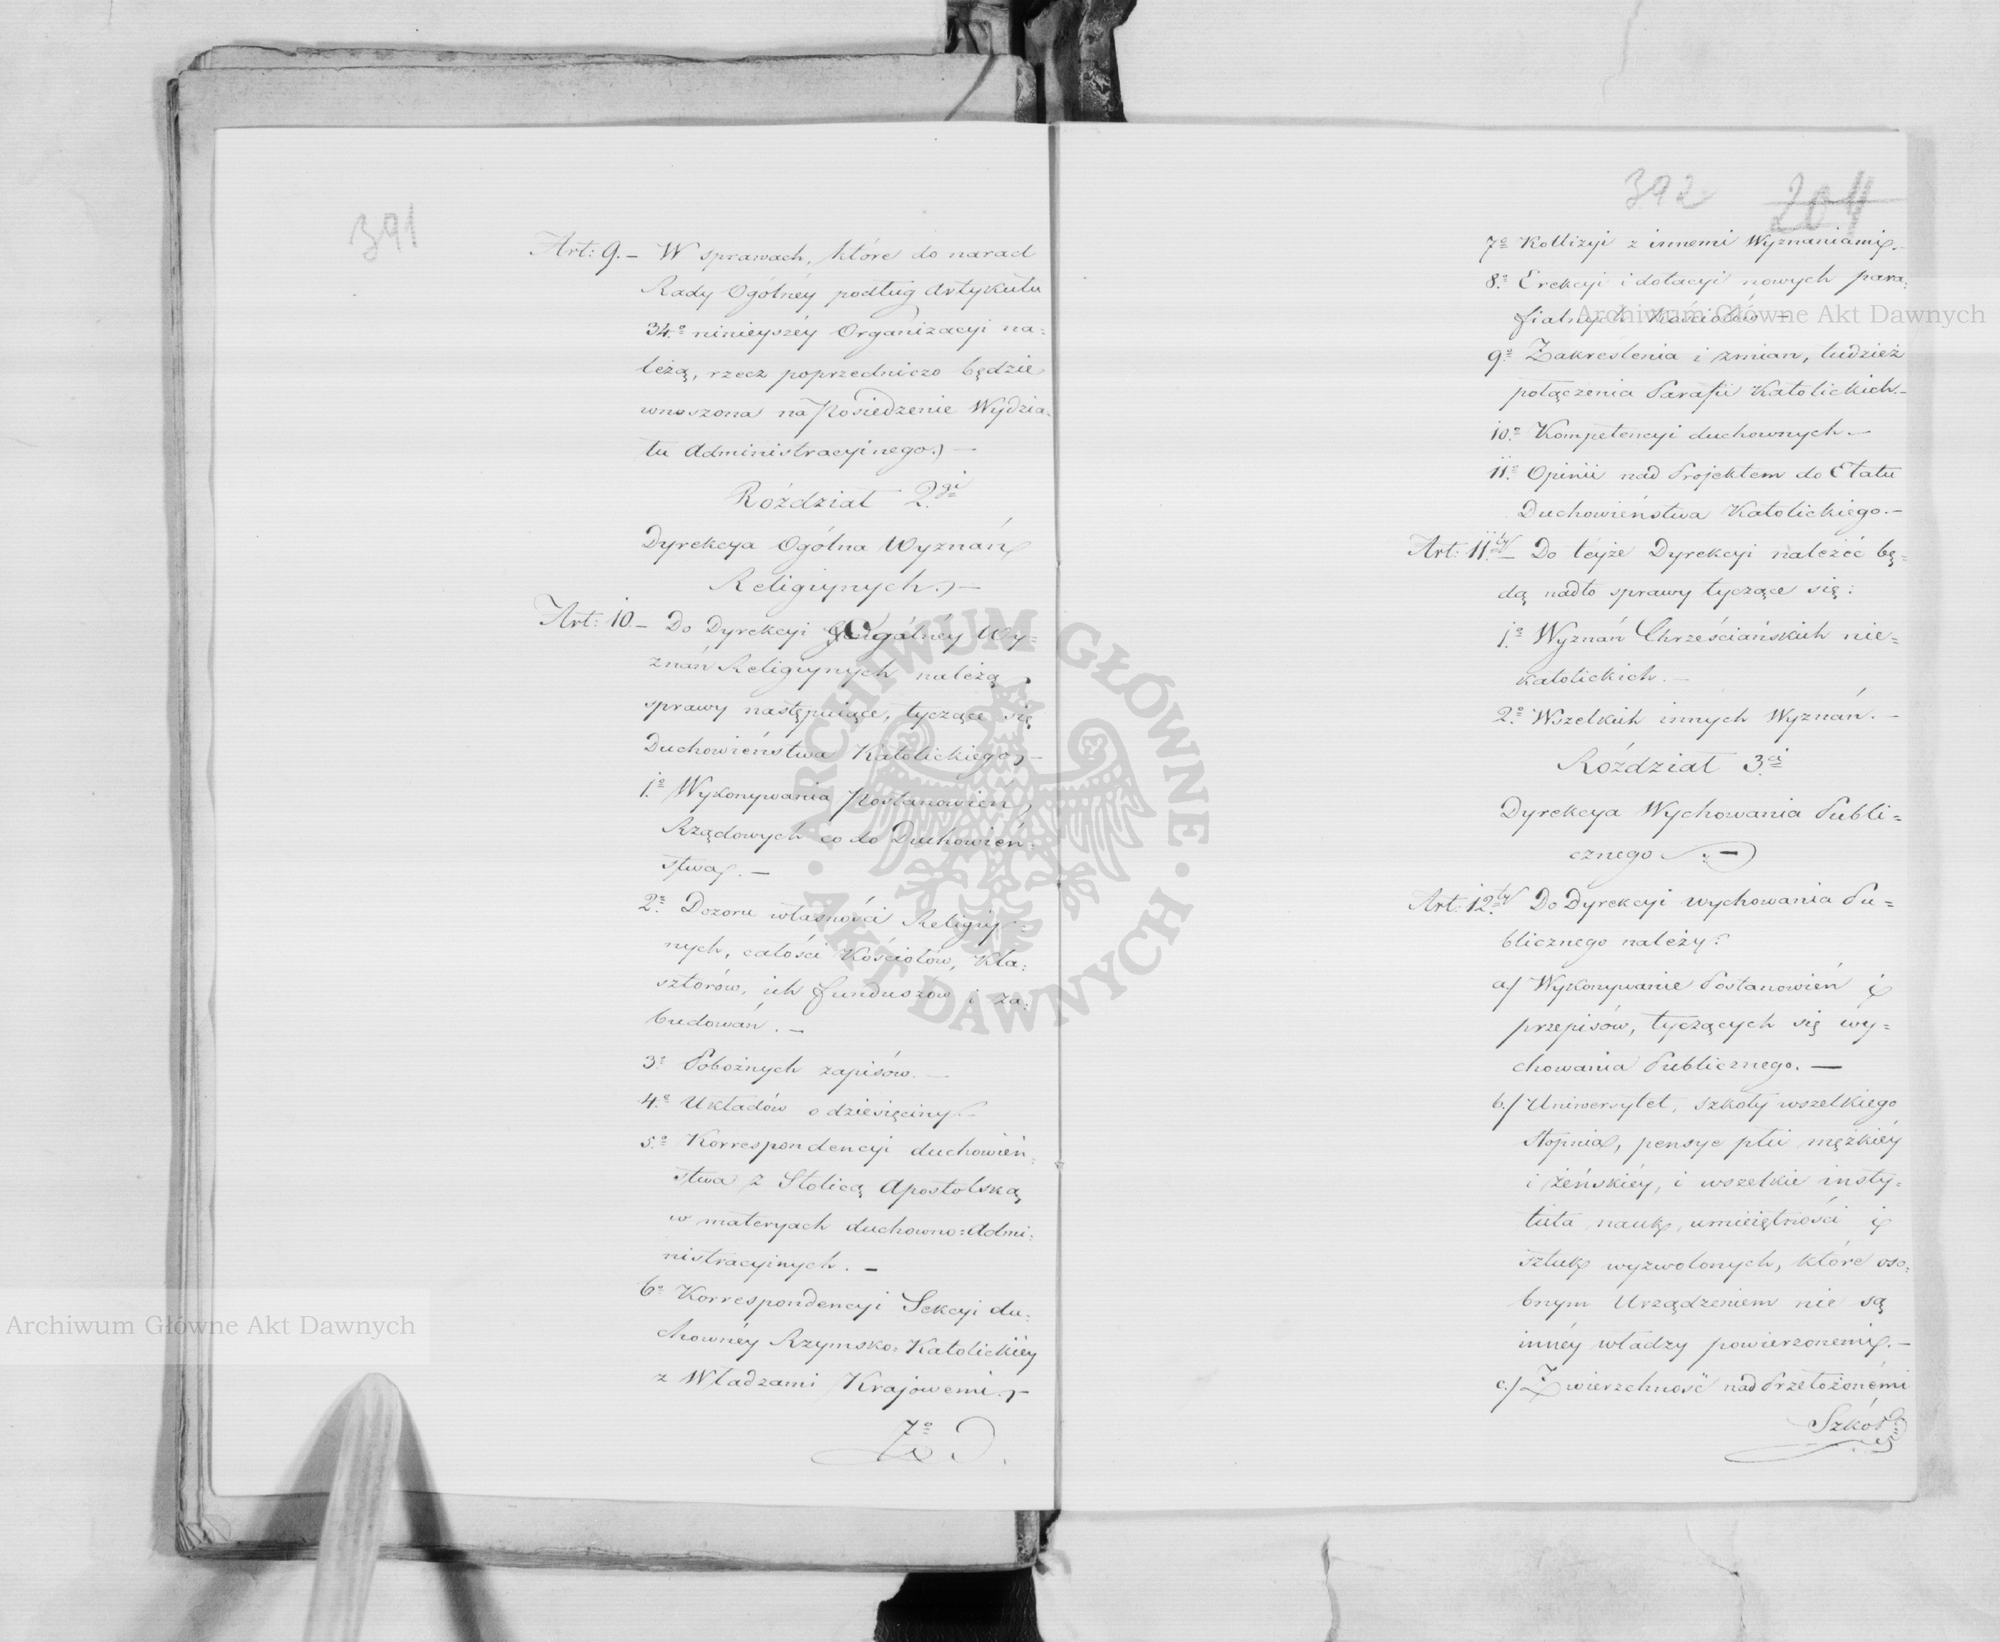 391
Art: 9. — W sprawach, które do narad
Rady Ogólnéy podług Artykułu
34.º ninieyszéy Organizacyi na=
leżą, rzecz poprzedniczo będzie
wnoszona na Posiedzenie Wydzia=
łu Administracyinego. —
Roździał 2.gi
Dyrekcya Ogólna Wyznań
Religiynych. —
Art: 10. — Do Dyrekcyi Ogólnéy Wy=
znań Religiynych należą
sprawy następuiące, tyczące się
Duchowieństwa Katolickiego, —
1.º Wykonywania Postanowień
Rządowych co do Duchowień=
stwa. —
2.º Dozoru własności Religiy=
nych, całości Kościołow, Kla=
sztórów, ich funduszow i za=
budowań. —
3.º Pobożnych zapisów. —
4.º Układów o dziesięciny. —
5.º Korrespondencyi duchowień=
stwa z Stolicą Apostolską
w materyach duchowno=Admi=
nistracyinych. —
6.º Korrespondencyi Sekcyi du=
chownéy Rzymsko=Katolickiéy
z Władzami Krajowemi. —
7.º
392 204
7.º Kollizyi z innemi Wyznaniami. —
8.º Erekcyi i dotacyi nowych para=
fialnych Kościołów —
9.º Zakreślenia i zmian, tudzież
połączenia Parafii Katolickich. —
10.º Kompetencyi duchownych. —
11.º Opinii nad Projektem do Etatu
Duchowieństwa Katolickiego. —
Art: 11.ty — Do téyże Dyrekcyi należeć bę=
dą nadto sprawy tyczące się:
1.º Wyznań Chrześciańskich nie=
katolickich. —
2.º Wszelkich innych Wyznań. —
Roździał 3.ci
Dyrekcya Wychowania Publi=
cznego. —
Art: 12.ty Do Dyrekcyi wychowania Pu=
blicznego należy:
a./ Wykonywanie Postanowień i
przepisów, tyczących się wy=
chowania Publicznego. —
b./ Uniwersytet, szkoły wszelkiego
stopnia, pensye płci męzkiéy
i żeńskiéy, i wszelkie insty=
tuta nauk, umieiętności i
sztuk wyzwolonych, które oso=
bnym Urządzeniem nie są
innéy władzy powierzonemi. —
c./ Zwierzchność nad Przełożonémi
Szkół
Archiwum Główne Akt Dawnych
Archiwum Główne Akt Dawnych
ARCHIWUM GŁÓWNE · AKT DAWNYCH ·